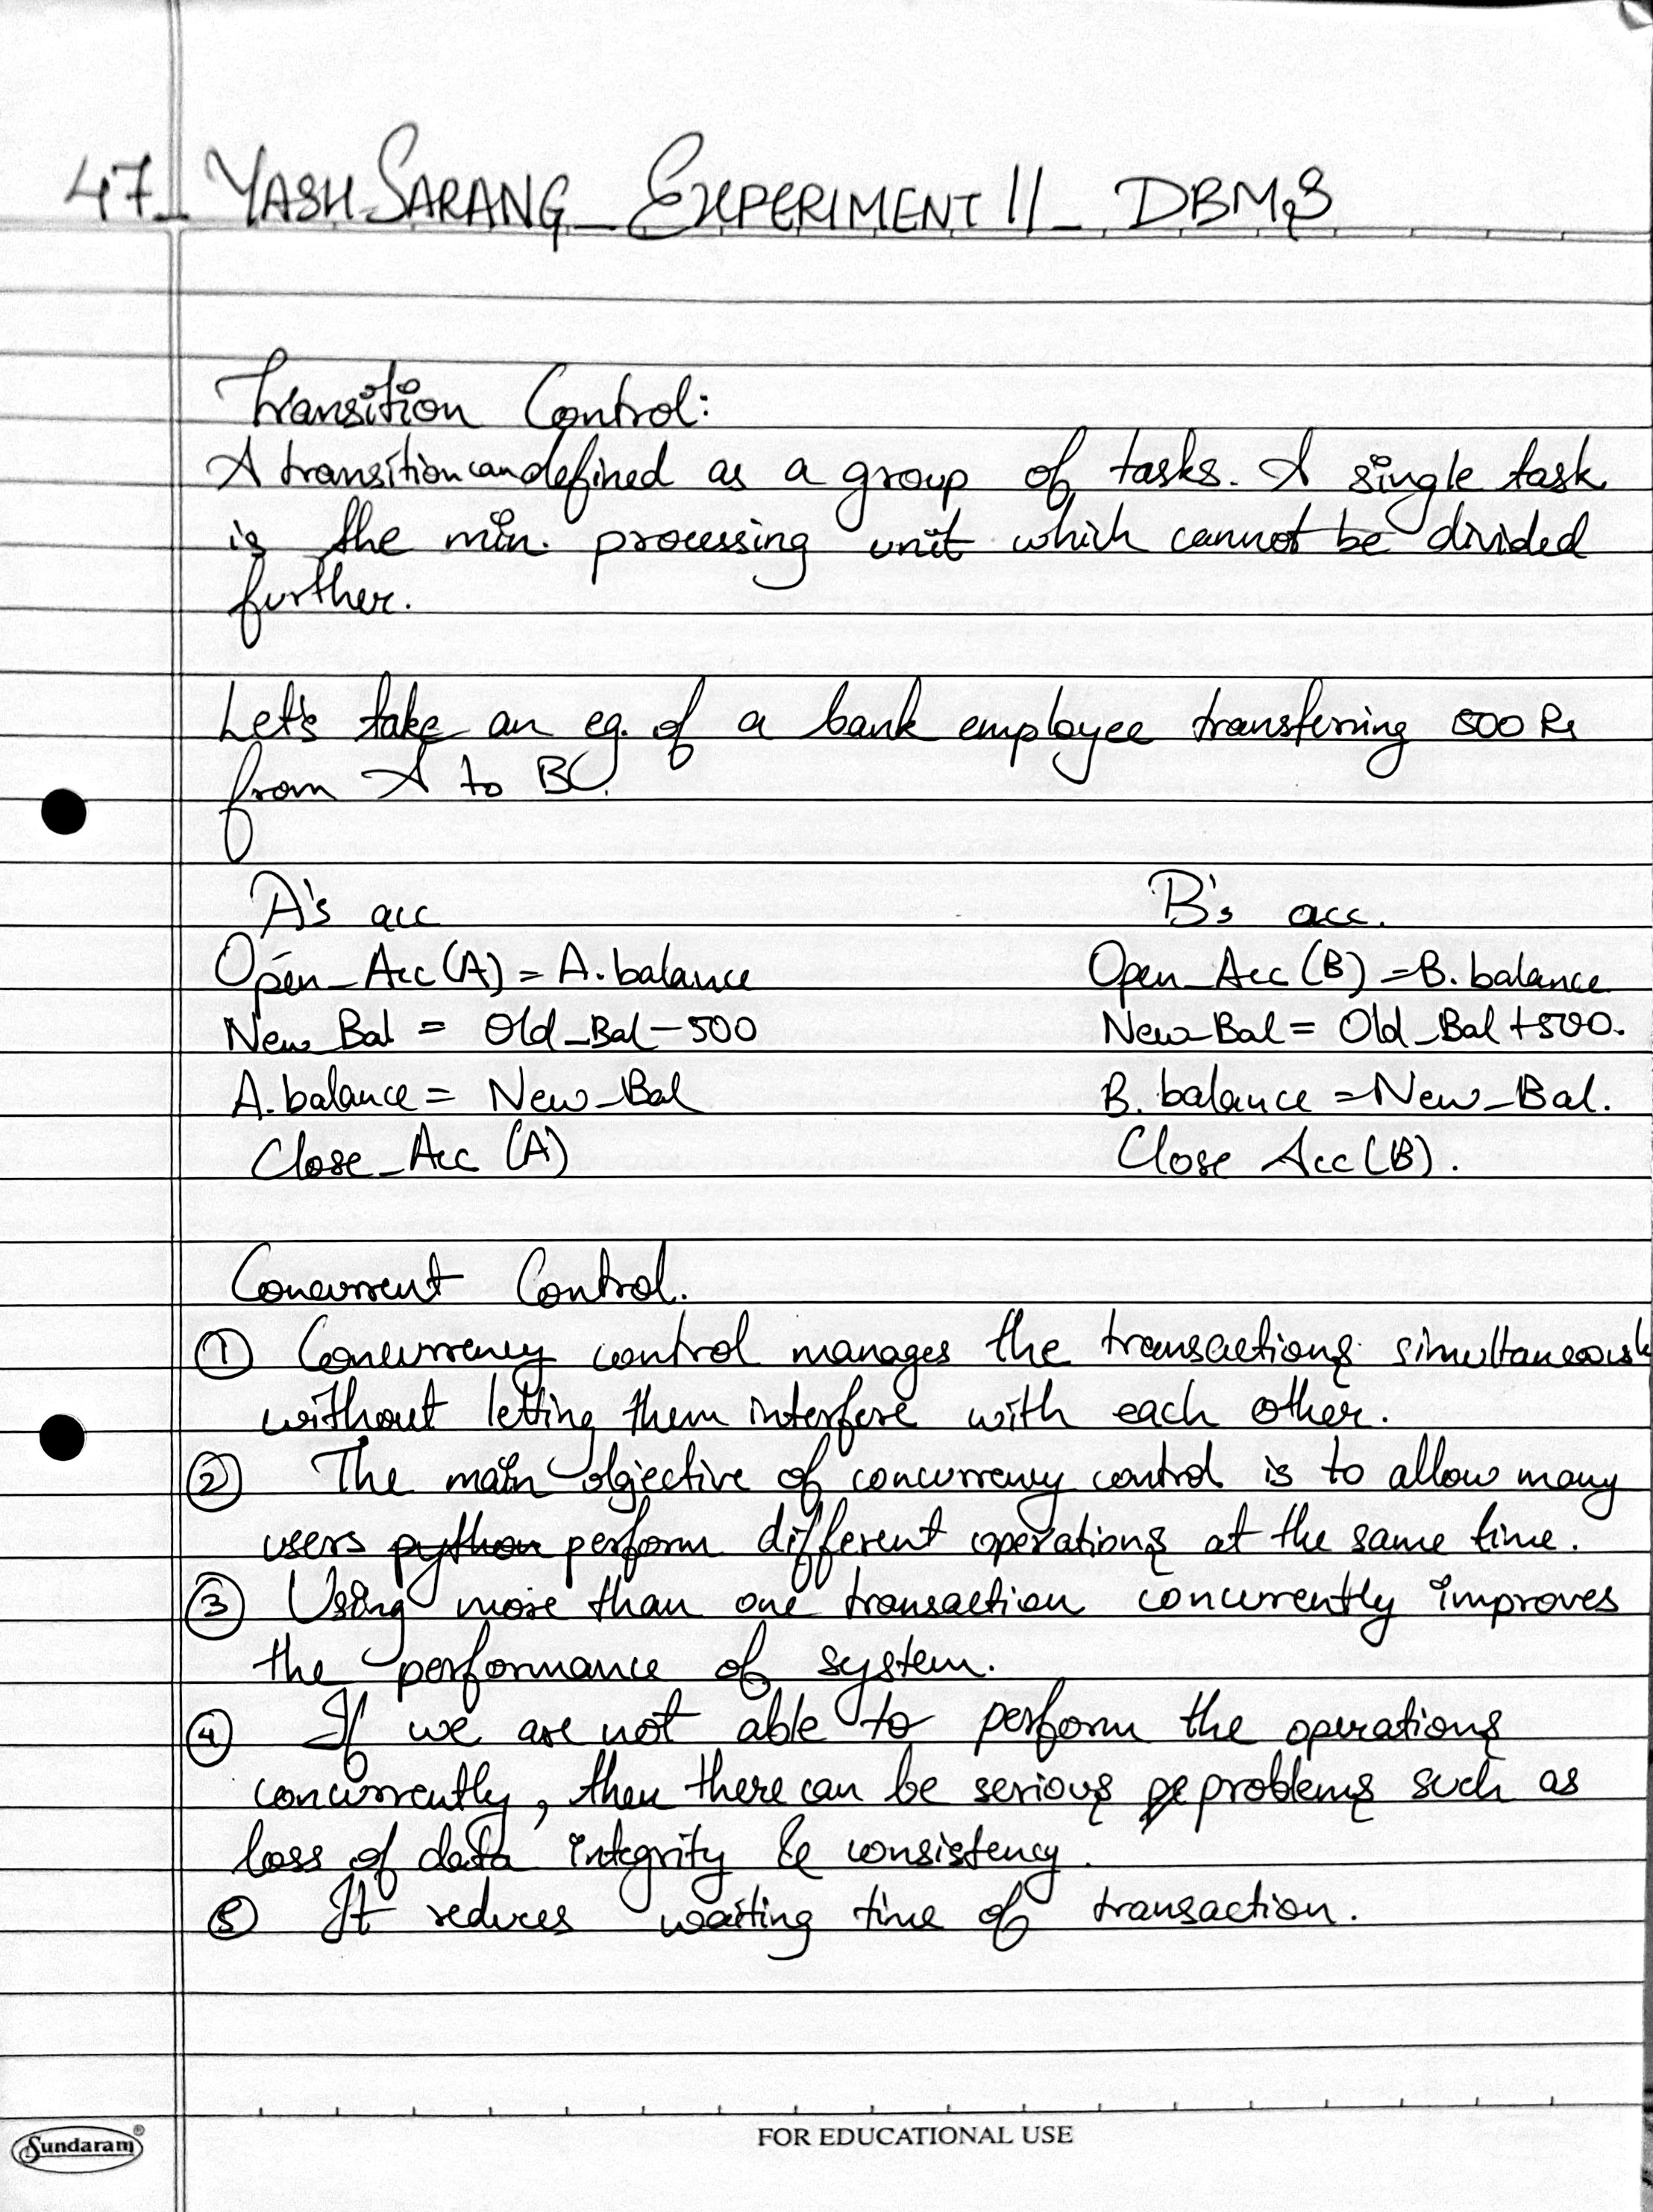 47_ YASH SARANG_ EXPERIMENT 11_ DBMS
Transition Control:
A transition can defined as a group of tasks. A single task
is the min. processing unit which cannot be divided
further.
Let's take an eg. of a bank employee transferring 500 Rs
from A to B.
A's acc B's acc.
Open_Acc(A) = A.balance Open_Acc(B) = B.balance
New_Bal = Old_Bal - 500 New_Bal = Old_Bal + 500.
A.balance = New_Bal B.balance = New_Bal.
Close_Acc (A) Close Acc(B).
Concurrent Control.
① Concurrency control manages the transactions simultaneously
without letting them interfere with each other.
② The main objective of concurrency control is to allow many
users python perform different operations at the same time.
③ Using more than one transaction concurrently improves
the performance of system.
④ If we are not able to perform the operations
concurrently, then there can be serious pr problems such as
loss of data integrity & consistency.
⑤ It reduces waiting time of transaction.
Sundaram®
FOR EDUCATIONAL USE